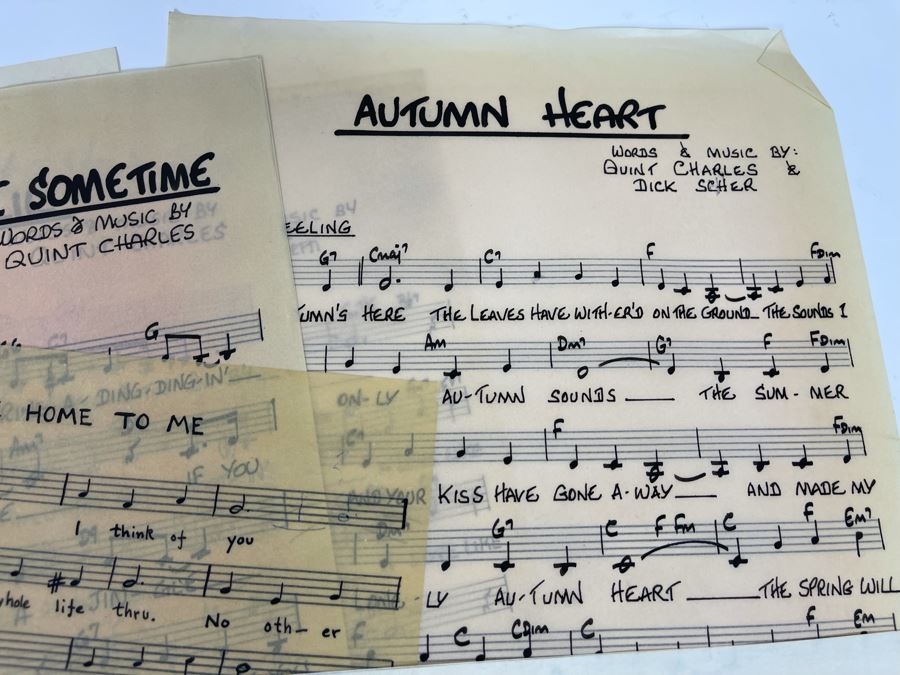 AUTUMN HEART
WORDS & MUSIC BY:
QUINT CHARLES &
DICK SCHER
EELING
G7 Cmaj7 C7 F FDIM
UMN'S HERE THE LEAVES HAVE WITH-ER'D ON THE GROUND_ THE SOUNDS I
Am Dm7 G7 F FDIM
ON-LY AU-TUMN SOUNDS ___ THE SUM-MER
C7 F FDIM
AND YOUR KISS HAVE GONE A-WAY___ AND MADE MY
Dm7 G7 C F Fm C F Em7
-LY AU-TUMN HEART ___ THE SPRING WILL
F C CDIM C F Em
SOMETIME
WORDS & MUSIC BY
QUINT CHARLES
G
A-DING-DING-IN'
Am7
IF YOU
HOME TO ME
I think of you
whole life thru. No oth-er